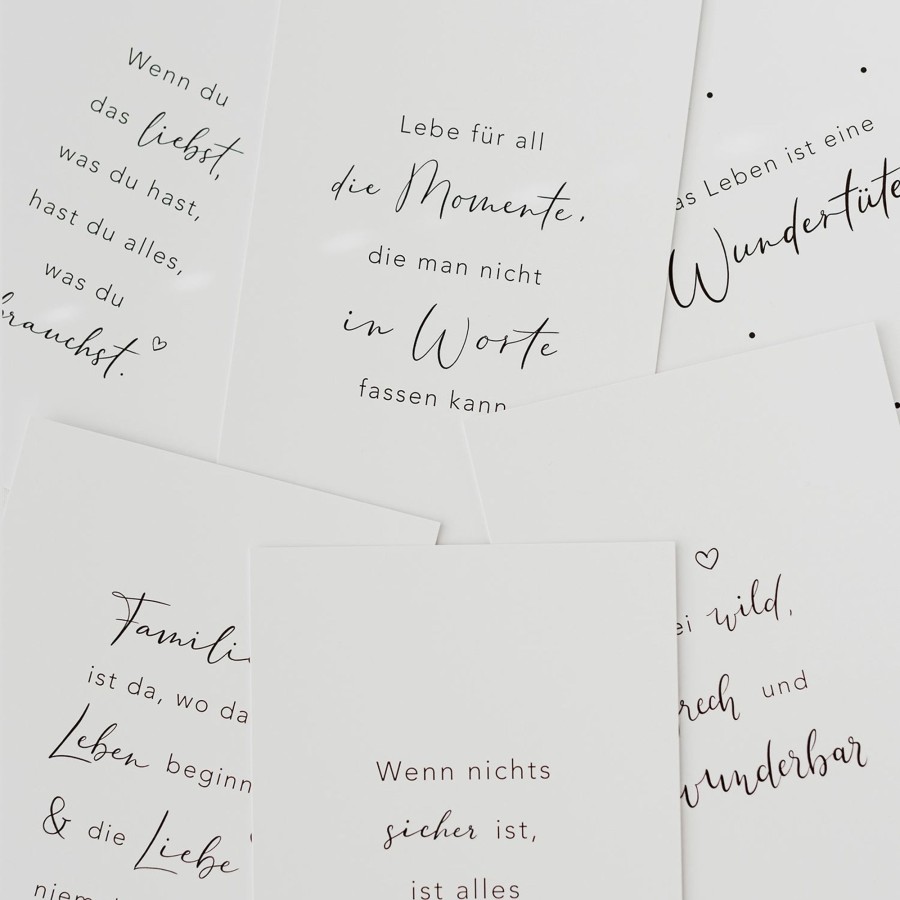 Wenn du
das liebst,
was du hast,
hast du alles,
was du
brauchst.
Lebe für all
die Momente,
die man nicht
in Worte
fassen kann
as Leben ist eine
Wundertüte
Familie
ist da, wo da
Leben beginn
& die Liebe
niem
Wenn nichts
sicher ist,
ist alles
ei wild,
rech und
wunderbar